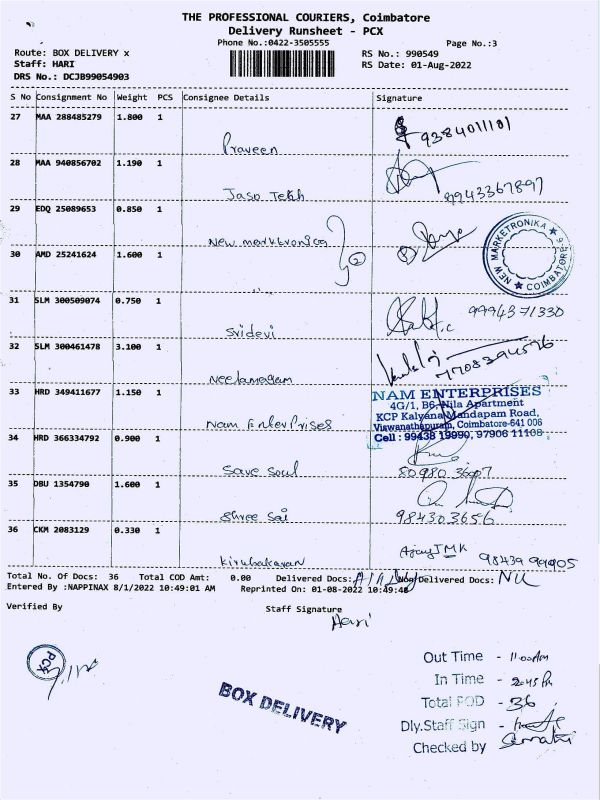 THE PROFESSIONAL COURIERS, Coimbatore
Delivery Runsheet - PCX
Phone No.:0422-3505555
Page No.:3
Route: BOX DELIVERY x
RS No.: 990549
Staff: HARI
RS Date: 01-Aug-2022
DRS No.: DCJB99054903
S No Consignment No Weight PCS Consignee Details Signature
27 MAA 288485279 1.800 1
Praveen 9384011101
28 MAA 940856702 1.190 1
Jaso Tekh 9943367897
29 EDQ 25089653 0.850 1
New marktronics 2
NEW MARKETRONIKA COIMBATORE
30 AMD 25241624 1.600 1
31 SLM 300509074 0.750 1
Sridevi 9994371330
32 SLM 300461478 3.100 1
Neelamegam
33 HRD 349411677 1.150 1
Nam Enterprises
NAM ENTERPRISES
4G/1, B6, Nila Apartment
KCP Kalyana Mandapam Road,
Viswanathapuram, Coimbatore-641 006
Cell : 99438 19990, 97906 11108
34 HRD 366334792 0.900 1
Save Soul 80980 36007
35 DBU 1354790 1.600 1
Shree Sai 984303656
36 CKM 2083129 0.330 1
Kirubakaran Ajay JMK 98439 99905
Total No. Of Docs: 36 Total COD Amt: 0.00 Delivered Docs: Non Delivered Docs: NIL
Entered By :NAPPINAX 8/1/2022 10:49:01 AM Reprinted On: 01-08-2022 10:49:48
Verified By Staff Signature
Hari
PCX
BOX DELIVERY
Out Time - 11:00 Am
In Time - 2:45 Pm
Total POD - 36
Dly.Staff Sign -
Checked by